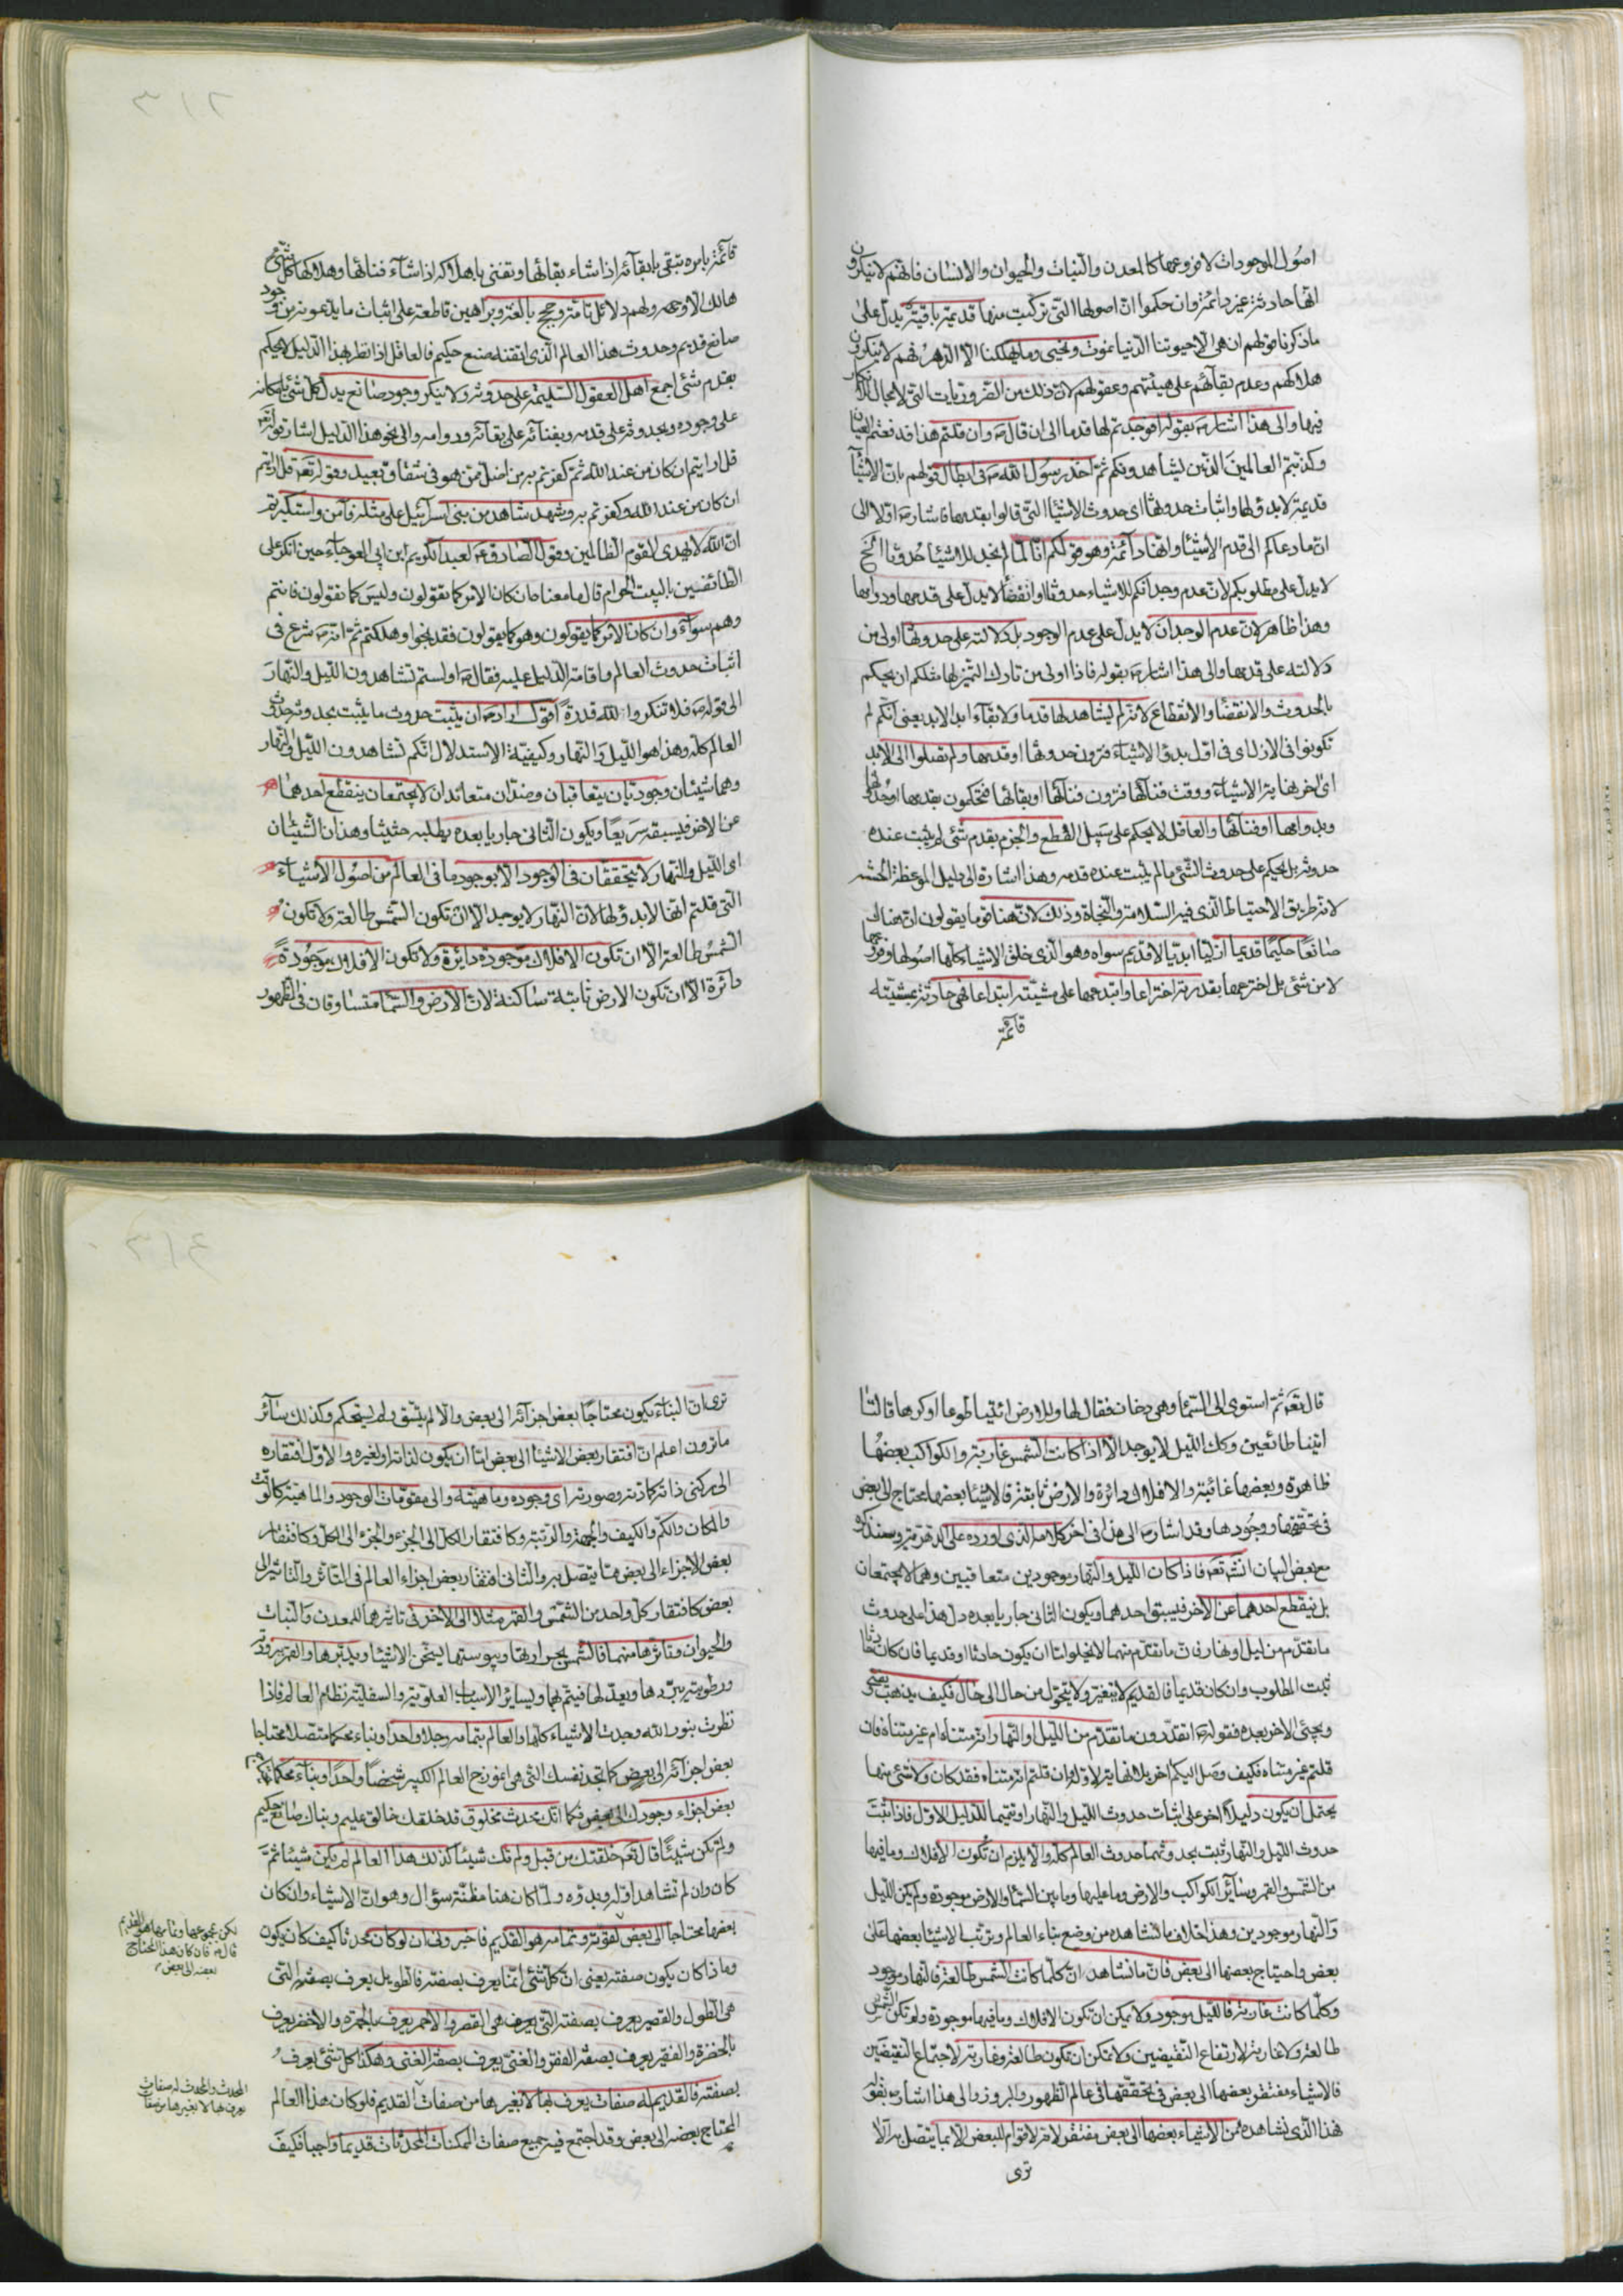 اصول الموجودات لا فروعها كالمعدن والنبات والحيوان والانسان فانهم لا ينكرون
انها حادثة غير دائمة وان حكموا ان اصولها التى تركبت منها قديمة باقية يدل على
ما ذكرنا قولهم ان هى الا حيوتنا الدنيا نموت ونحيى وما يهلكنا الا الدهر فهم لا ينكرون
هلاكهم وعدم بقائهم على هيئتهم وعقولهم لان ذلك من الضروريات التى لا مجال للانكار
فيها والى هذا اشار ص بقوله افوجدتم لها قدما الى ان قال ص وان قلتم هذا فدفعتم العيان
وكذبتم العالمين الذين يشاهدونكم ثم اخذ رسول الله ص فى ابطال قولهم بان الاشيآ
قديمة لا بدؤ لها واثبات حدوثها اى حدوث الاشيآ التى قالوا بقدمها فاشار ص اولا الى
ان ما دعاكم الى قدم الاشيآ وانها دآئمة وهو قولكم انا لما لم نجد للاشيآ حدوثا الخ
لا يدل على مطلوبكم لان عدم وجدانكم للاشيآء حدوثا وانقضآ لا يدل على قدمها ودوامها
وهذا ظاهر لان عدم الوجدان لا يدل على عدم الوجود بل دلالته على حدوثها اولى من
دلالته على قدمها والى هذا اشار ص بقوله فاذا اولى من تارك التميز لها مثلكم ان يحكم
بالحدوث والانقضآ والانقطاع لانه لم يشاهد لها قدما ولا بقآء ابد الابد يعنى انكم لم
تكونوا فى الازل اى فى اول بدؤ الاشيآء فترون حدوثها او قدمها ولم تصلوا الى الابد
اى اخر نهاية الاشيآء ووقت فنآئها فترون فنآئها او بقائها فتحكمون بقدمها او حدوثها
وبدوامها او فنآئها والعاقل لا يحكم على سبيل القطع والجزم بقدم شئى لم يثبت عنده
حدوثه بل يحكم على حدوث الشئى ما لم يثبت عنده قدمه وهذا اشارة الى دليل الموعظة الحسنة
لانه طريق الاحتياط الذى فيه السلامة والنجاة وذلك لان هنا قوما يقولون ان هناك
صانعا حكيما قديما ازليا ابديا لا قديم سواه وهو الذى خلق الاشيآء كلها اصولها وفروعها
لا من شئى بل اخترعها بقدرته اختراعا وابتدعها على مشيته ابتداعا فهى حادثة بمشيته
قآئمة
قآئمة بامره تبقى بابقآئه اذا شاء بقائها وتفنى باهلاكه اذا شآء فنائها وهلاكها كل شئى
هالك الا وجهه ولهم دلائل تامة وحجج بالغة وبراهين قاطعة على اثبات ما يدعونه من وجود
صانع قديم وحدوث هذا العالم الذى اتقنه صنع حكيم فالعاقل اذا نظر بهذا الدليل لا يحكم
بقدم شئى اجمع اهل العقول السليمة على حدوثه ولا ينكر وجود صانع يدل كل شئى بامكانه
على وجوده وبحدوثه على قدمه وبفنآئه على بقآئه ودوامه والى نحو هذا الدليل اشار قوله تعالى
قل ارايتم ان كان من عند الله ثم كفرتم به من اضل ممن هو فى شقاق بعيد وقوله تعه قل ارايتم
ان كان من عند الله وكفرتم به وشهد شاهد من بنى اسرآئيل على مثله فآمن واستكبرتم
ان الله لا يهدى القوم الظالمين وقول الصادق عه لعبد الكريم ابن ابى العوجآء حين انكر على
الطائفين بالبيت الحرام قال ما معناه ان كان الامر كما تقولون وليس كما تقولون فانتم
وهم سوآء وان كان الامر كما يقولون وهو كما يقولون فقد نجوا وهلكتم ثم انه ص شرع فى
اثبات حدوث العالم واقامة الدليل عليه فقال ص اولستم تشاهدون الليل والنهار
الى قوله ص فلا تنكروا لله قدرة اقول اراد ص ان يثبت حدوث ما يثبت بحدوثه حدوث
العالم كله وهذا هو الليل والنهار وكيفية الاستدلال انكم تشاهدون الليل والنهار
وهما شيئان وجوديان يتعاقبان وضدان متعاندان لا يجتمعان ينقطع احدهما
عن الاخر فيسبقه سريعا ويكون الثانى جاريا بعده يطلبه حثيثا وهذان الشيئان
اى الليل والنهار لا يتحققان فى الوجود الا بوجود ما فى العالم من اصول الاشيآء
التى قلتم انها لا بدؤ لها لان النهار لا يوجد الا ان تكون الشمس طالعة ولا تكون
الشمس طالعة الا ان تكون الافلاك موجودة دايرة ولا تكون الافلاك موجودة
دائرة الا ان تكون الارض ثابتة ساكنة لان الارض والسمآ متساوقان فى الظهور
قال تعه ثم استوى الى السمآ وهى دخان فقال لها وللارض ائتيا طوعا او كرها قالتا
اتينا طائعين وكك الليل لا يوجد الا اذا كانت الشمس غاربة والكواكب بعضها
ظاهرة وبعضها غائبة والافلاك دائرة والارض ثابتة فالاشيآ بعضها يحتاج الى بعض
فى تحققها ووجودها وقد اشار ص الى هذا فى اخر كلامه الذى اورده على الدهرية وسنذكره
مع بعض البيان انشه تعه فاذا كان الليل والنهار موجودين متعاقبين وهما لا يجتمعان
بل ينقطع احدهما عن الاخر فيسبق احدهما ويكون الثانى جاريا بعده دل هذا على حدوث
ما تقدم من ليل او نهار فان ما تقدم منهما لا يخلو اما ان يكون حادثا او قديما فان كان حادثا
ثبت المطلوب وان كان قديما فالقديم لا يتغير ولا يتحول من حال الى حال فكيف يذهب يمضى
ويجئى الاخر بعده فقوله ص اتقدرون ما تقدم من الليل والنهار انه متناه ام غير متناه فان
قلتم غير متناه فكيف وصل اليكم اخر بلا نهاية لاوله وان قلتم انه متناه فقد كان ولا شئى منها
يحتمل ان يكون دليلا اخر على اثبات حدوث الليل والنهار او تتميما للدليل الاول فاذا ثبت
حدوث الليل والنهار ثبت بحدوثهما حدوث العالم كله والا يلزم ان تكون الافلاك وما فيها
من الشمس والقمر وسآئر الكواكب والارض وما عليها وما بين السمآ والارض موجودة ولم يكن الليل
والنهار موجودين وهذا خلاف ما نشاهده من وضع بناء العالم وترتب الاشيآ بعضها على
بعض واحتياج بعضها الى بعض فان ما نشاهد ان كلما كانت الشمس طالعة فالنهار موجود
وكلما كانت غاربة فالليل موجود ولا يمكن ان تكون الافلاك وما فيها موجودة ولم تكن الشمس
طالعة ولا غاربة لارتفاع النقيضين ولا تمكن ان تكون طالعة وغاربة لاجتماع النقيضين
فالاشيآء مفتقر بعضها الى بعض فى تحققها فى عالم الظهور والبروز والى هذا اشار ص بقوله
فهذا الذى نشاهده من الاشيآء بعضها الى بعض مفتقر لانه لا قوام للبعض الا بما يتصل به الا
ترى
ترى ان البنآء يكون محتاجا بعض اجزآئه الى بعض والا لم يتسق ولم يستحكم وكذلك سآئر
ما ترون اعلم ان افتقار بعض الاشيآ الى بعض اما ان يكون لذاته او لغيره والاول افتقاره
الى ركنى ذاته كمادته وصورته اى وجوده وماهيته والى مقومات الوجود والماهية كالوقت
والمكان والكم والكيف والجهة والرتبة وكافتقار الكل الى الجزء والجزء الى الكل وكافتقار
بعض الاجزاء الى بعض مما يتصل به والثانى افتقار بعض اجزاء العالم فى التاثر والتاثير الى
بعض كافتقار كل واحد من الشمس والقمر مثلا الى الاخر فى تاثيرهما للمعدن والنبات
والحيوان وتاثرها منهما فالشمس بحرارتها ويبوستها يسخن الاشيآ ويدبرها والقمر ببرودته
ورطوبته يبردها ويعدلها فيتم بهما وبسائر الاسباب العلوية والسفلية نظام العالم فاذا
نظرت بنور الله وجدت الاشيآء كلها والعالم بتمامه رجلا واحدا وبناء محكما متصلا محتاجا
بعض اجزآئه الى بعض كما تجد نفسك التى هى انموذج العالم الكبير شخصا واحدا وبنآء محكما
بعض اجزاء وجودك الى بعض فكما انك محدث مخلوق قد خلقك خالق عليم وبناك صانع حكيم
ولم تكن شيئا قال تعه خلقتك من قبل ولم تك شيئا كذلك هذا العالم لم يكن شيئا ثم
كان وان لم تشاهد اوله وبدؤه ولما كان هنا مظنة سؤال وهو ان الاشيآء وان كان
بعضها محتاجا الى بعض لقوته وتمامه هو القديم فاخبرونى ان لو كان محدثا كيف كان يكون
وما ذا كان يكون صفته يعنى ان كل شئى انما يعرف بصفته فالطويل يعرف بصفته التى
هى الطول والقصير يعرف بصفته التى هى القصر والاحمر يعرف بالحمرة والاخضر يعرف
بالخضرة والفقير يعرف بصفة الفقر والغنى يعرف بصفة الغنى وهكذا كل شئى يعرف
بصفته فالقديم له صفات يعرف بها لا بغيرها من صفات القديم فلو كان هذا العالم
المحتاج بعضه الى بعض وقد اجتمع فيه جميع صفات الممكنات المحدثات قديما واجبا فكيف
لكن مجموعها وتمامها هو القديم
قال ص فان كان هذا المحتاج
بعضه الى بعض
المحدث والمحدث له صفات
يعرف بها لا بغيرها من صفات